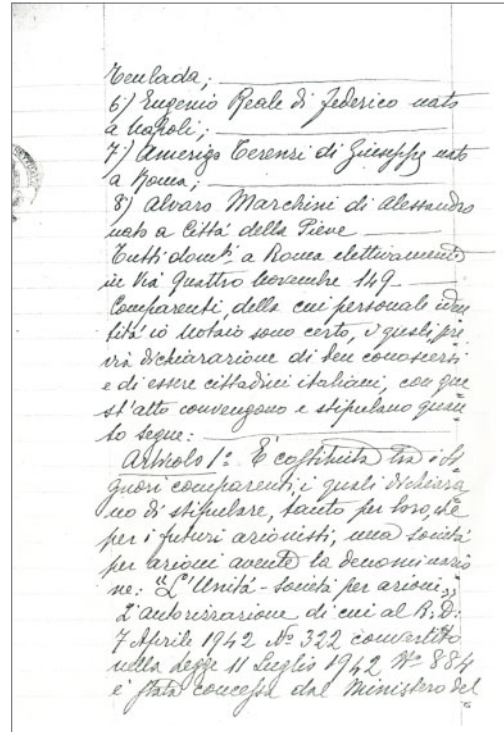 Teulada;
6) Eugenio Reale di Federico nato
a Napoli;
7) Amerigo Terenzi di Giuseppe nato
a Roma;
8) Alvaro Marchini di Alessandro
nato a Città della Pieve
Tutti domti. a Roma elettivamente
in Via Quattro Novembre 149
Comparenti, della cui personale iden
tità io Notaio sono certo, i quali, pre
via dichiarazione di ben conoscersi
e di essere cittadini italiani, con que
st'atto convengono e stipulano quan
to segue:
Articolo 1º: È costituita tra i Si
gnori comparenti, i quali dichiara
no di stipulare, tanto per loro, che
per i futuri azionisti, una società
per azioni avente la denominazio
ne: "L'Unità - società per azioni,,
L'autorizzazione di cui al R.D.
7 Aprile 1942 Nº 322 convertito
nella legge 11 Luglio 1942 Nº 884
è stata concessa dal Ministero del